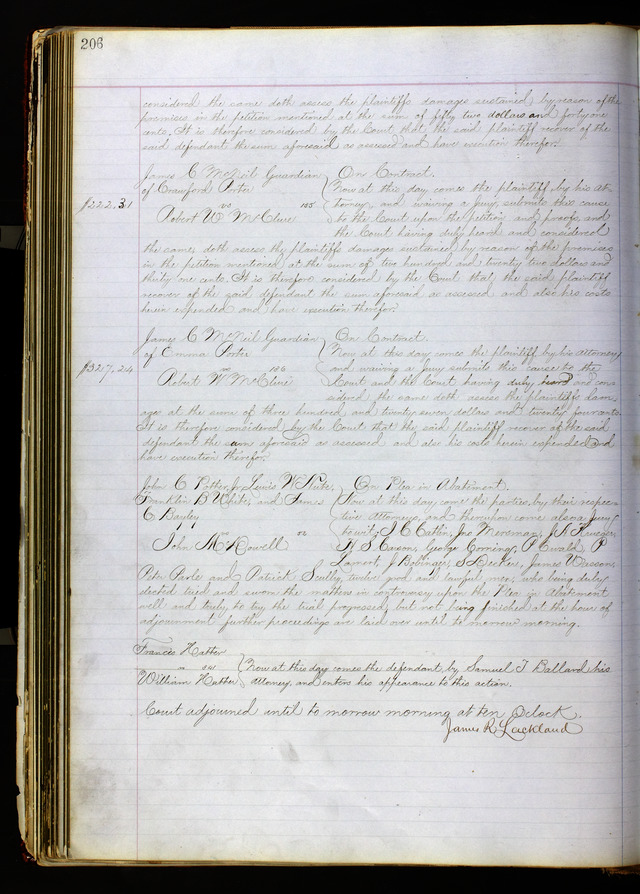 206
considered the same doth assess the plaintiffs damages sustained by reason of the
premises in the petition mentioned at the sum of fifty two dollars and forty one
cents. It is therefore considered by the Court that the said plaintiff recover of the
said defendant the sum aforesaid as assessed and have execution therefor.
James C McNeil Guardian On Contract.
of Crawford Porter Now at this day comes the plaintiff by his at
$222.31 vs 185 torney, and waiving a jury, submits this cause
Robert W McClure to the Court upon the petition and proofs, and
the Court having duly heard and considered
the same, doth assess the plaintiffs damages sustained by reason of the premises
in the petition mentioned at the sum of two hundred and twenty two dollars and
thirty one cents. It is therefore considered by the Court that the said plaintiff
recover of the said defendant the sum aforesaid as assessed and also his costs
herein expended and have execution therefor.
James C McNeil Guardian On Contract.
of Emma Porter Now at this day comes the plaintiff by his Attorney
$327.24 vs 186 and waiving a jury submits this cause to the
Robert W McClure Court and the Court having duly heard and con
sidered the same doth assess the plaintiffs dam
ages at the sum of three hundred and twenty seven dollars and twenty four cents.
It is therefore considered by the Court that the said plaintiff recover of the said
defendant the sum aforesaid as assessed and also his costs herein expended and
have execution therefor.
John C Jr Louise W On Plea in Abatement.
Franklin B White, and Now at this day come the parties by their respec-
C Bayley tive Attorneys and thereupon come also a jury
to wit; J C Catlin, Jno Moreman, J H Krueger,
John McDowell H S Cason, George Corning, P Ewald, P
Lamort, J Bollinger, S Decker, James Wesson,
Peter Perle and Patrick Scully, twelve good and lawful men, who being duly
elected tried and sworn the matters in controversy upon the Plea in Abatement
well and truly to try the trial progressed, but not being finished at the hour of
adjournment further proceedings are laid over until to morrow morning.
Francis Hatter
vs Now at this day comes the defendant by Samuel T Ballard his
William Hatter Attorney, and enters his appearance to this action.
Court adjourned until to morrow morning at ten Oclock.
James R Lackland